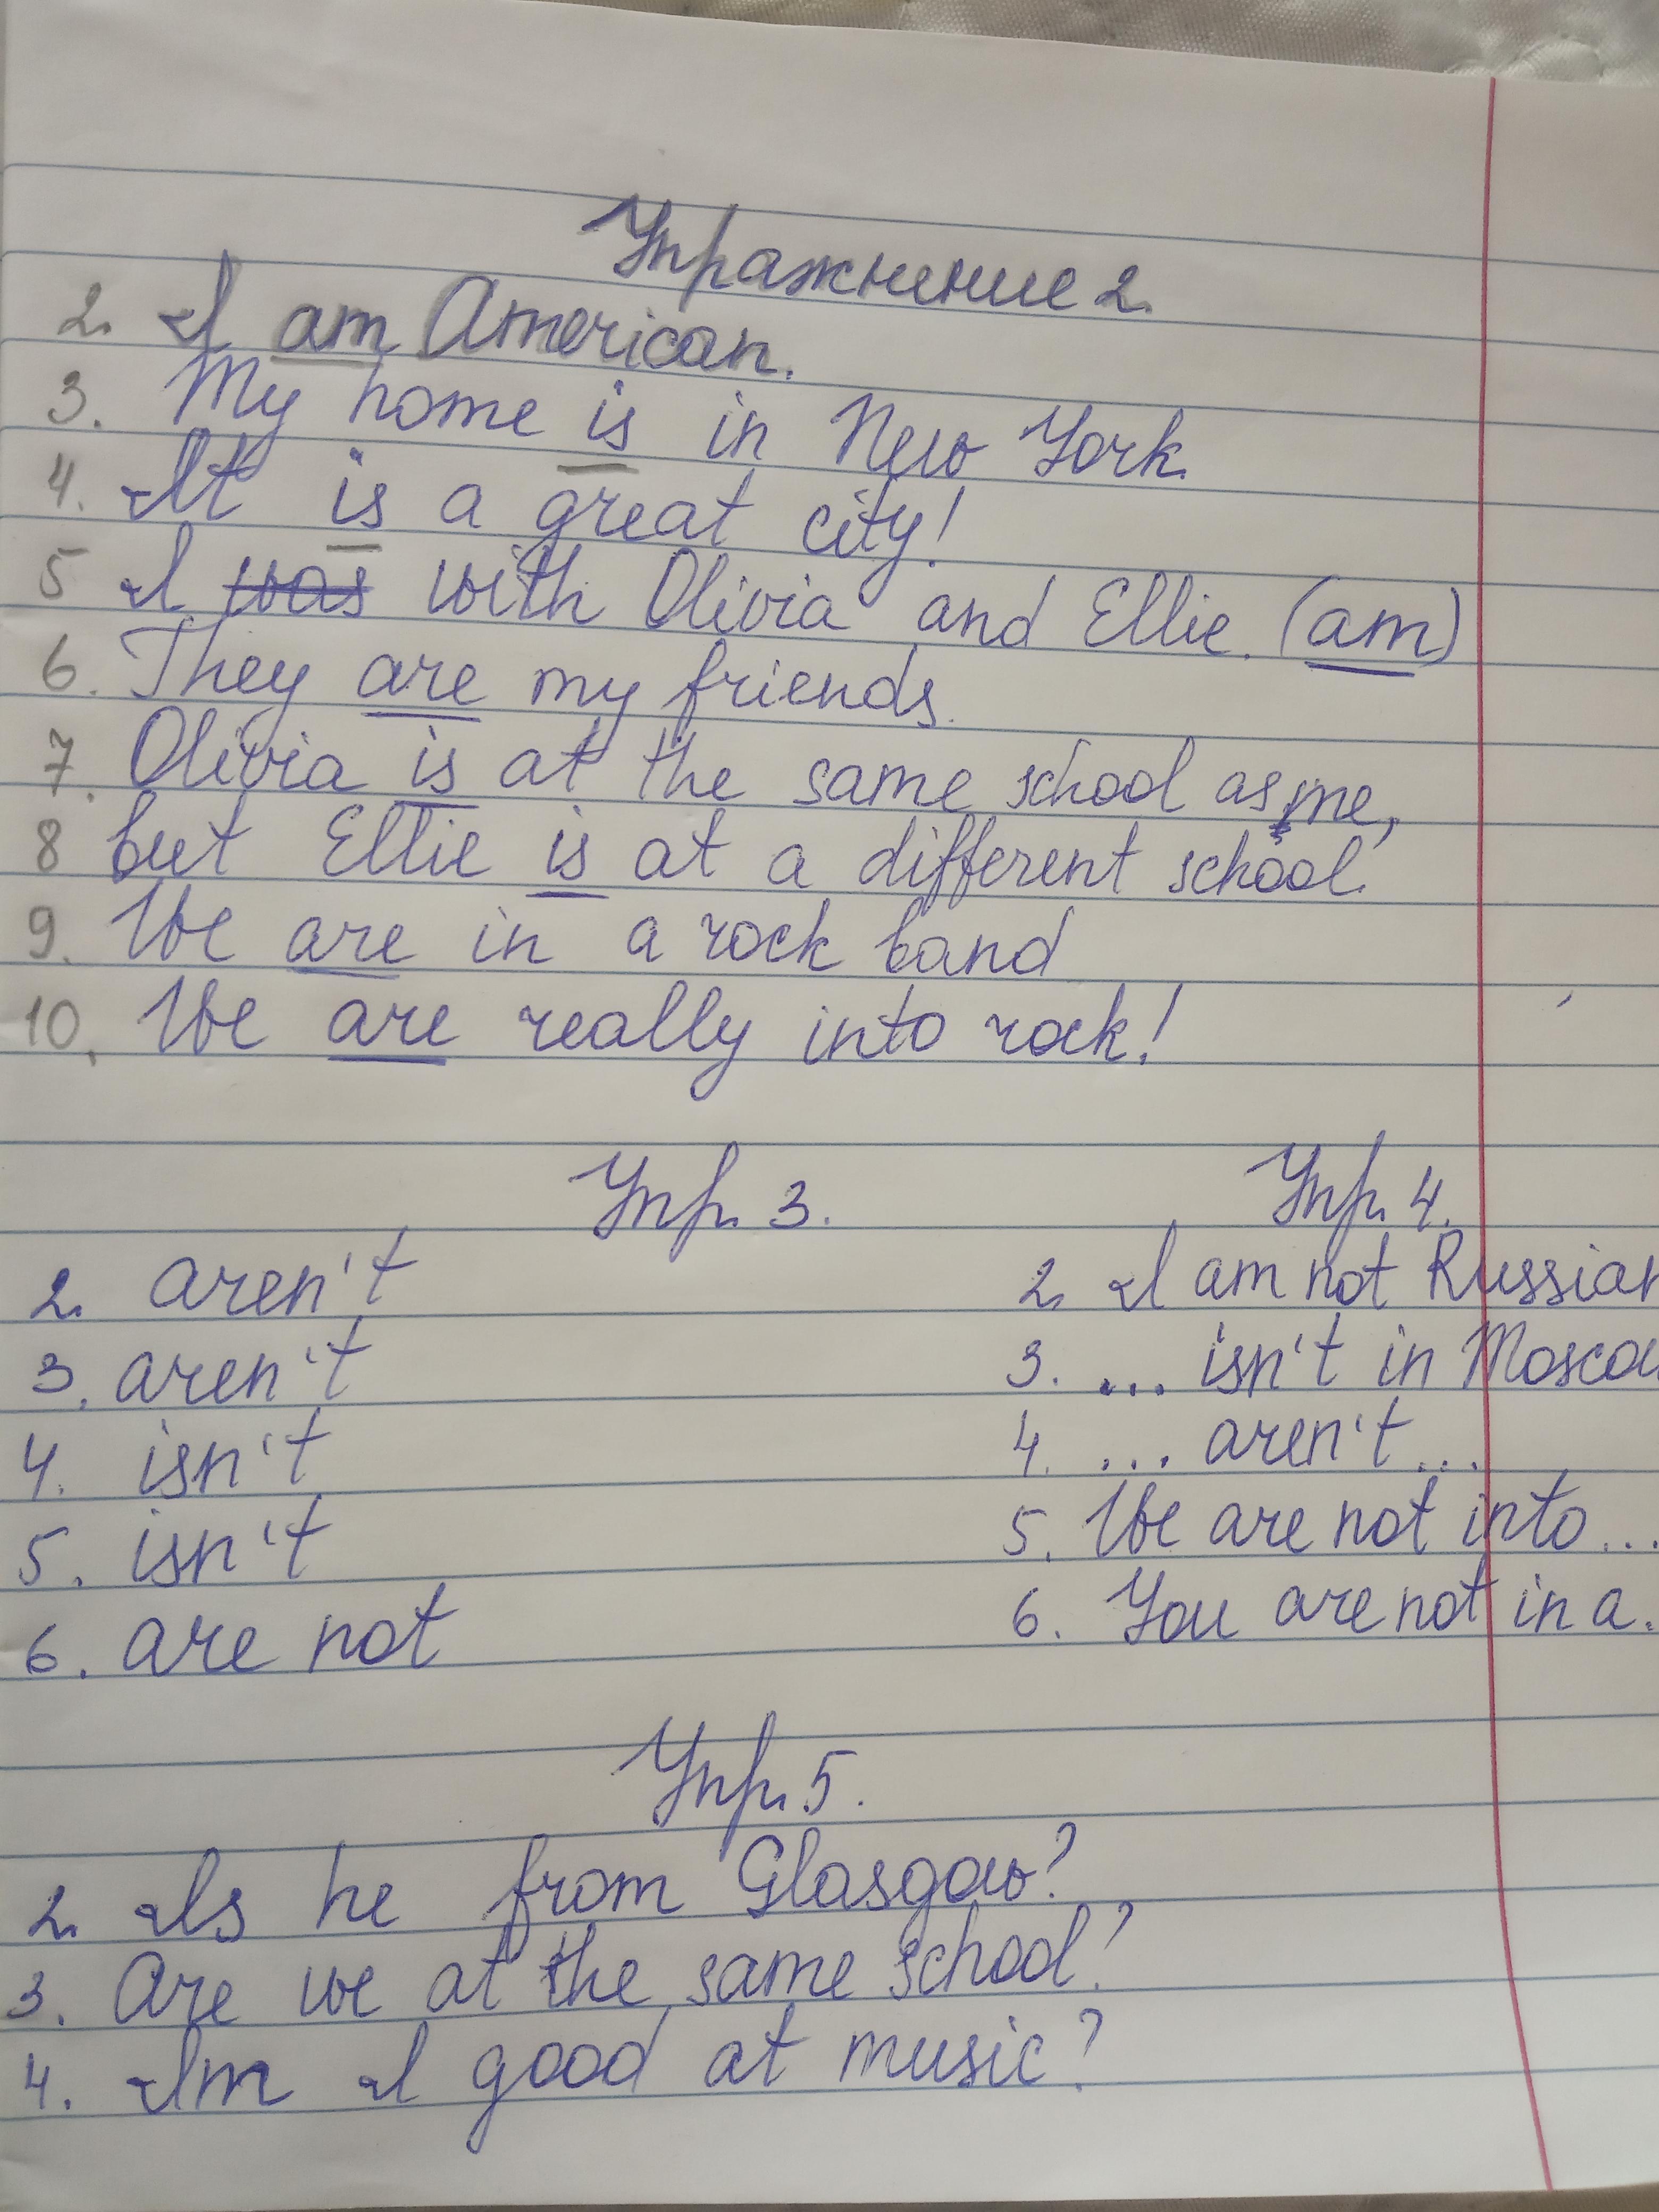 Упражнение 2.
2. I am American.
3. My home is in New York.
4. It is a great city!
5 I was with Olivia and Ellie. (am)
6. They are my friends.
7. Olivia is at the same school as me,
8 but Ellie is at a different school.
9. We are in a rock band
10. We are really into rock!
Упр. 3.
2. aren't
3. aren't
4. isn't
5. isn't
6. are not
Упр. 4.
2. I am not Russian
3. ... isn't in Moscow
4. ... aren't ...
5. We are not into ...
6. You are not in a.
Упр. 5.
2. Is he from Glasgow?
3. Are we at the same school?
4. Im I good at music?